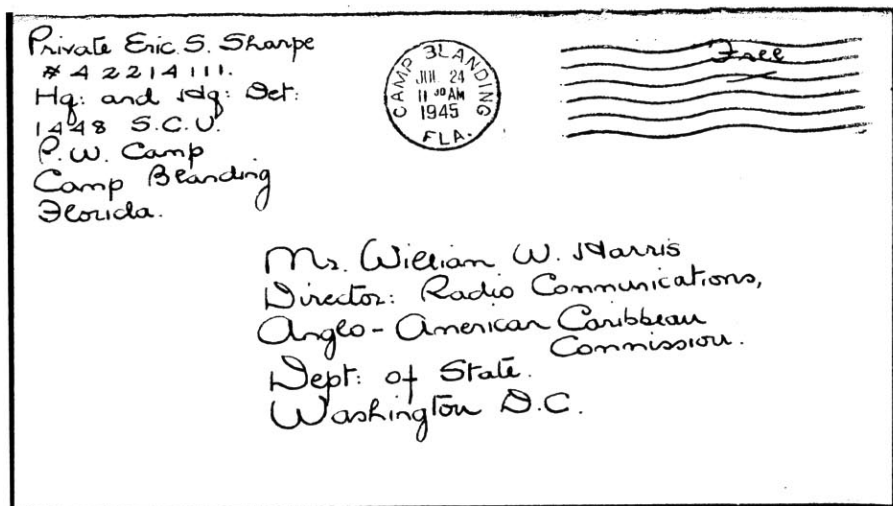 Private Eric. S. Sharpe
# 42214111.
Hq: and Hq: Det:
1448 S.C.U.
P.W. Camp
Camp Blanding
Florida.
CAMP BLANDING
JUL 24
11 30 AM
1945
FLA.
Free
Mr. William W. Harris
Director: Radio Communications,
Anglo-American Caribbean
Commission.
Dept: of State.
Washington D.C.